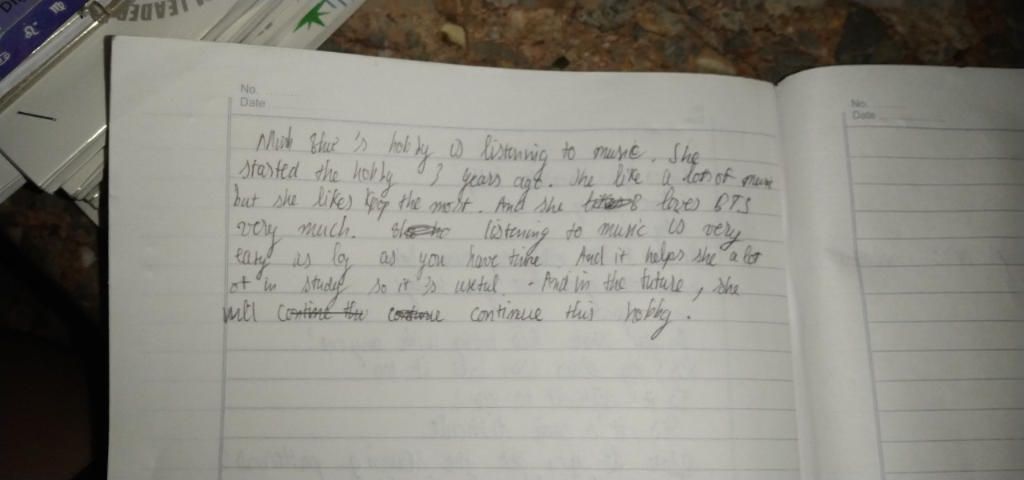 LEADER
No.
Date
No.
Date
's hobby is listenning to music. She
started the hobby 3 years ago. She like a lots of music
but she likes kpop the most. And she loves BTS
very much. listening to music is very
easy as log as you have time And it helps she a lot
of in study so it is useful. And in the future, she
will contine the continue this hobby.